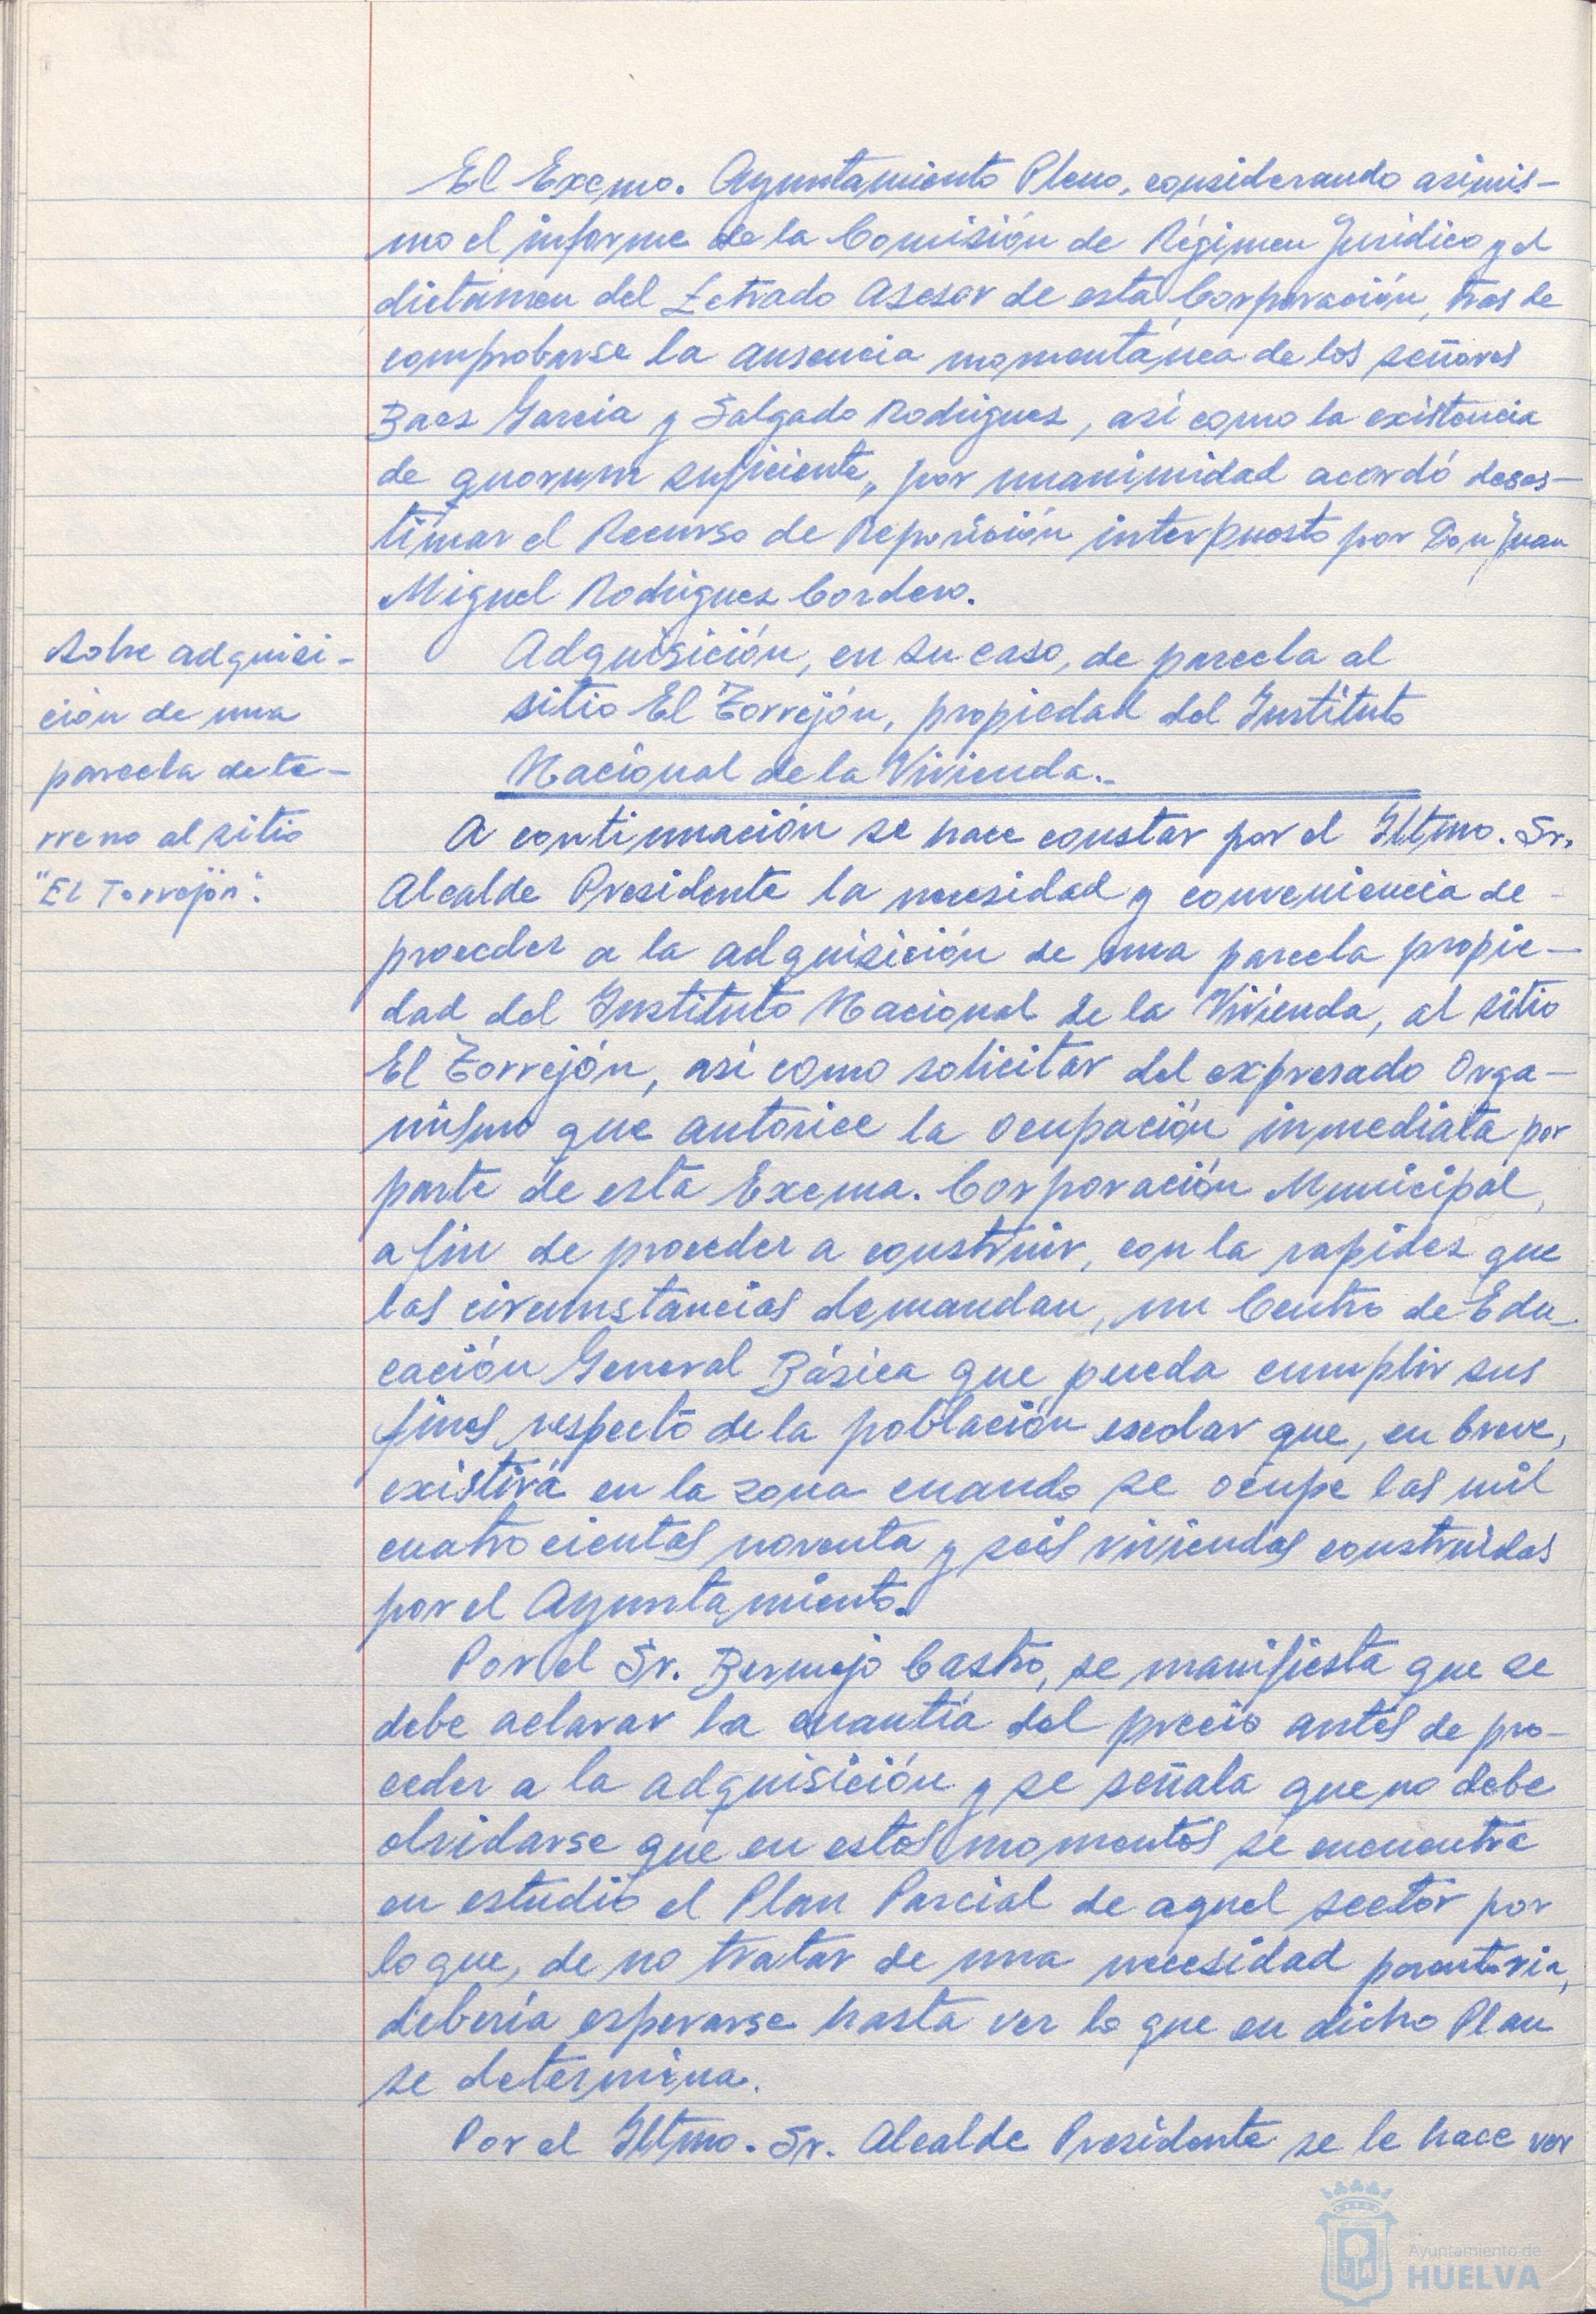 El Excmo. Ayuntamiento Pleno, considerando asimis-
mo el informe de la Comisión de Régimen Jurídico y el
dictamen del Letrado Asesor de esta Corporación, tras de
comprobarse la ausencia momentánea de los señores
Baes Garcia y Salgado Rodrigues, así como la existencia
de quorum suficiente, por unanimidad acordó deses-
timar el Recurso de Reposición interpuesto por Don Juan
Miguel Rodrigues Cordero.
Sobre adquisi-
ción de una
parcela de te-
rreno al sitio
"El Torrejón".
Adquisición, en su caso, de parcela al
sitio El Torrejón, propiedad del Instituto
Nacional de la Vivienda.-
A continuación se hace constar por el Iltmo. Sr.
Alcalde Presidente la necesidad y conveniencia de
proceder a la adquisición de una parcela propie-
dad del Instituto Nacional de la Vivienda, al sitio
El Torrejón, así como solicitar del expresado Orga-
nismo que autorice la ocupación inmediata por
parte de esta Excma. Corporación Municipal,
a fin de proceder a construir, con la rapidez que
las circunstancias demandan, un Centro de Edu-
cación General Básica que pueda cumplir sus
fines respecto de la población escolar que, en breve,
existirá en la zona cuando se ocupe las mil
cuatrocientas noventa y seis viviendas construidas
por el Ayuntamiento.
Por el Sr. Bermejo Castro, se manifiesta que se
debe aclarar la cuantía del precio antes de pro-
ceder a la adquisición y se señala que no debe
olvidarse que en estos momentos se encuentra
en estudio el Plan Parcial de aquel sector por
lo que, de no tratar de una necesidad perentoria,
debería esperarse hasta ver lo que en dicho Plan
se determina.
Por el Iltmo. Sr. Alcalde Presidente se le hace ver
Ayuntamiento de
HUELVA